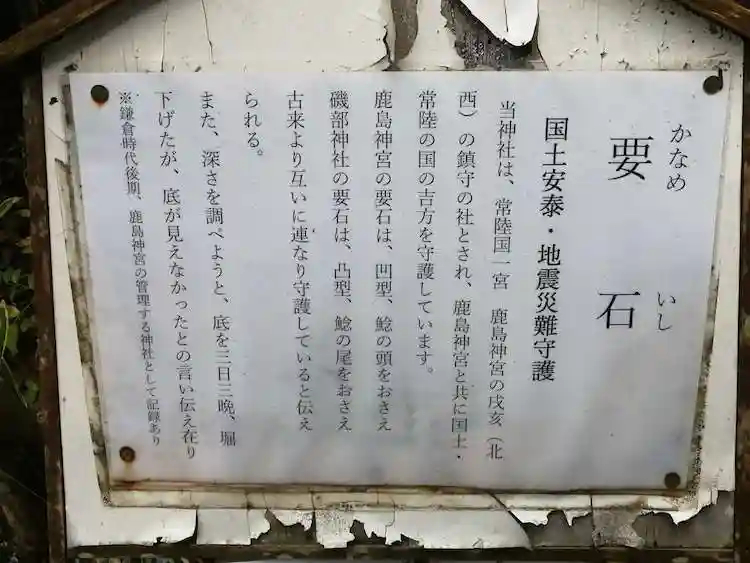 かなめ いし
要 石
国土安泰・地震災難守護
当神社は、常陸国一宮 鹿島神宮の戌亥（北
西）の鎮守の社とされ、鹿島神宮と共に国土・
常陸の国の吉方を守護しています。
鹿島神宮の要石は、凹型、鯰の頭をおさえ
磯部神社の要石は、凸型、鯰の尾をおさえ
古来より互いに連なり守護していると伝え
られる。
また、深さを調べようと、底を三日三晩、堀
下げたが、底が見えなかったとの言い伝え在り
※鎌倉時代後期、鹿島神宮の管理する神社として記録あり